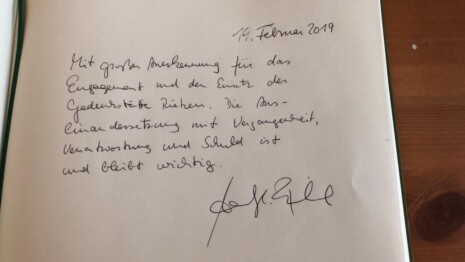 19. Februar 2019
Mit großer Anerkennung für das
Engagement und den Einsatz der
Gedenkstätte Riehen. Die Aus-
einandersetzung mit Vergangenheit,
Verantwortung und Schuld ist
und bleibt wichtig.